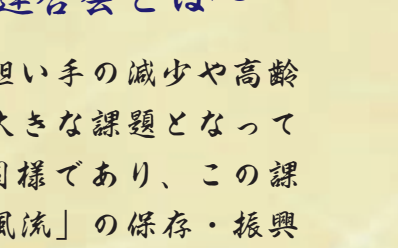 連合会とは～
担い手の減少や高齢
大きな課題となって
同様であり、この課
風流」の保存・振興